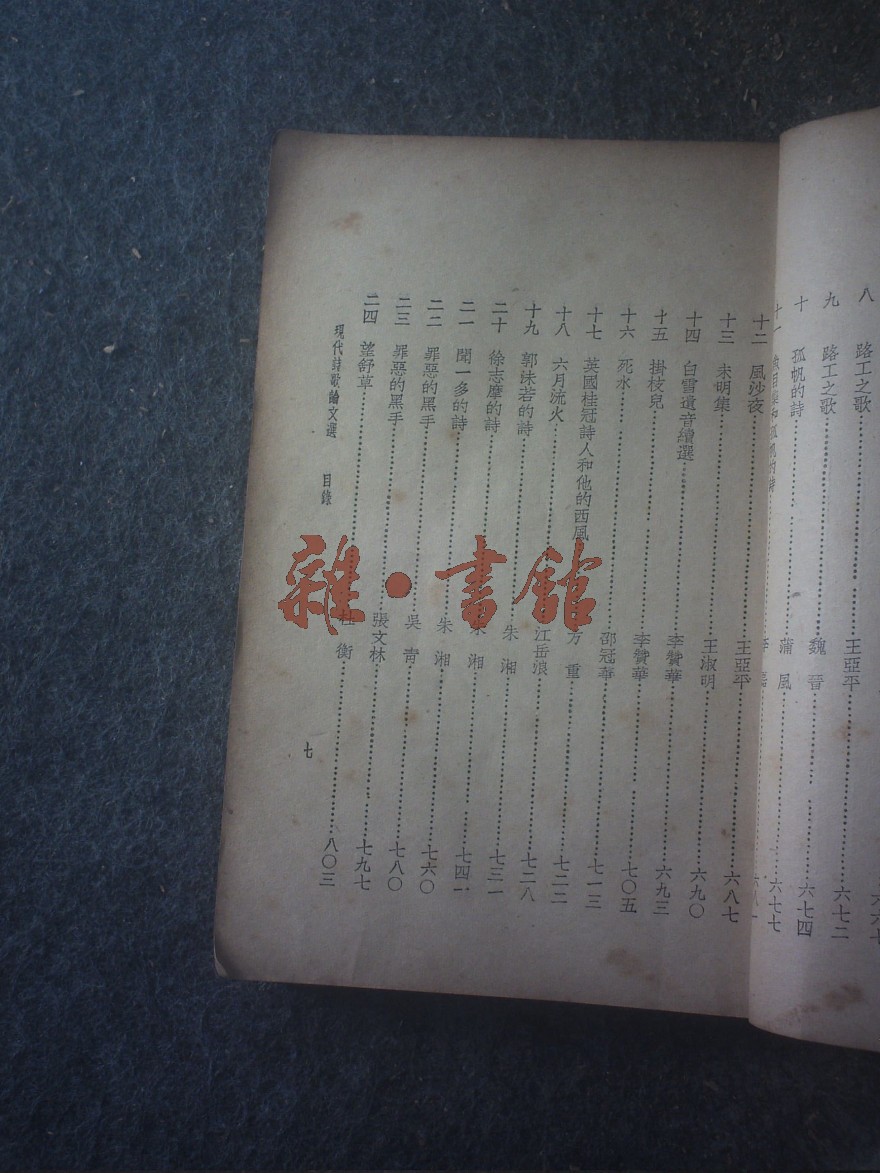 八 路工之歌……王亞平……六七二
九 路工之歌……魏晉……六七四
十 孤帆的詩……蒲風……六七七
十一 和孤帆的詩……六八一
十二 風沙夜……王亞平……六八七
十三 未明集……王淑明……六九〇
十四 白雪遺音續選……李贊華……六九三
十五 掛枝兒……李贊華……七〇五
十六 死水……邵冠華……七一三
十七 英國桂冠詩人和他的西風……方重……七二二
十八 六月流火……江岳浪……七二八
十九 郭沫若的詩……朱湘……七三一
二十 徐志摩的詩……朱湘……七四一
二一 聞一多的詩……朱湘……七六〇
二二 罪惡的黑手……吳青……七八〇
二三 罪惡的黑手……張文林……七九七
二四 望舒草……杜衡……八〇三
現代詩歌論文選 目錄 七
雜·書館